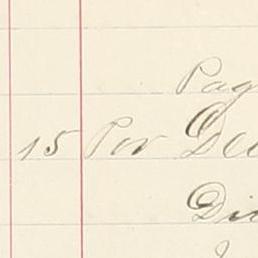 Pag
15 Per Dec
Di